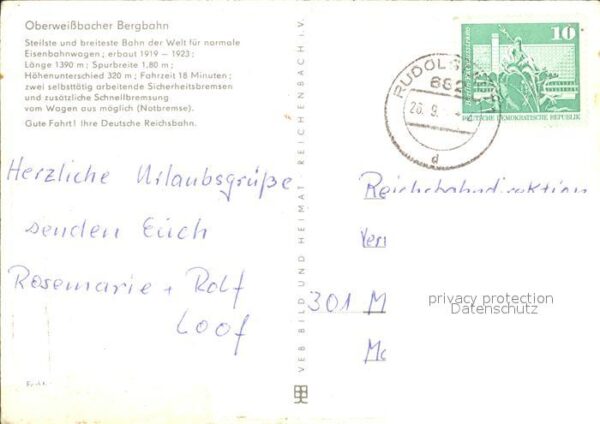 Oberweißbacher Bergbahn
Steilste und breiteste Bahn der Welt für normale
Eisenbahnwagen; erbaut 1919 – 1923;
Länge 1390 m; Spurbreite 1,80 m;
Höhenunterschied 320 m; Fahrzeit 18 Minuten;
zwei selbsttätig arbeitende Sicherheitsbremsen
und zusätzliche Schnellbremsung
vom Wagen aus möglich (Notbremse).
Gute Fahrt! Ihre Deutsche Reichsbahn.
Herzliche Urlaubsgrüße
senden Euch
Rosemarie + Rolf
Loof
VEB BILD UND HEIMAT · REICHENBACH i.V.
10
DEUTSCHE DEMOKRATISCHE REPUBLIK
RUDOLS
682
26.9.
d
Reichsbahndirektion
301 M
privacy protection
Datenschutz